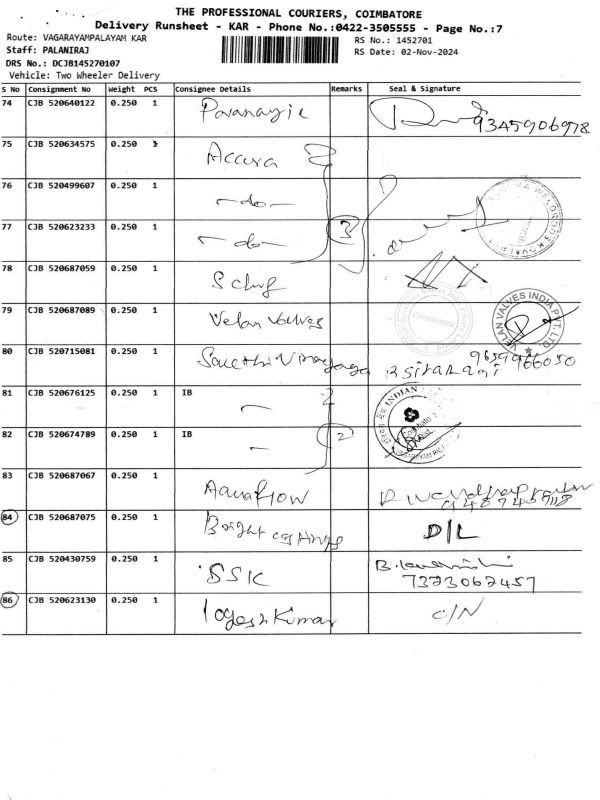 THE PROFESSIONAL COURIERS, COIMBATORE
Delivery Runsheet - KAR - Phone No.:0422-3505555 - Page No.:7
Route: VAGARAYAMPALAYAM KAR RS No.: 1452701
Staff: PALANIRAJ RS Date: 02-Nov-2024
DRS No.: DCJB145270107
Vehicle: Two Wheeler Delivery
S No Consignment No Weight PCS Consignee Details Remarks Seal & Signature
74 CJB 520640122 0.250 1
75 CJB 520634575 0.250 1 Accura
76 CJB 520499607 0.250 1 -do-
77 CJB 520623233 0.250 1 -do- 3
78 CJB 520687059 0.250 1
79 CJB 520687089 0.250 1 Velan Valves VELAN VALVES INDIA PVT. LTD.
80 CJB 520715081 0.250 1 9659966050
81 CJB 520676125 0.250 1 IB INDIAN
82 CJB 520674789 0.250 1 IB 2
83 CJB 520687067 0.250 1 Aquaflow
84 CJB 520687075 0.250 1 Bright castings D/L
85 CJB 520430759 0.250 1 SSK 7373062457
86 CJB 520623130 0.250 1 logesh Kumar C/N